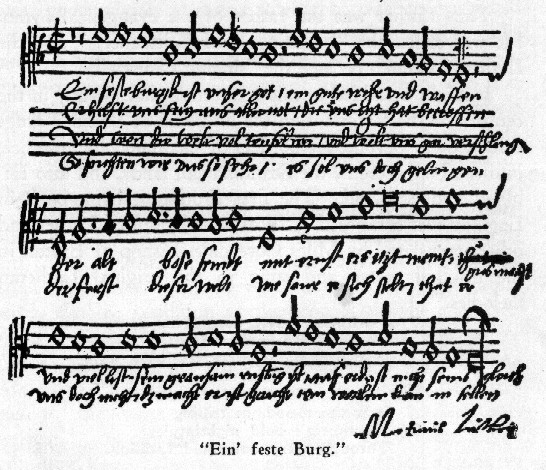 Ein feste burgk ist unser got / ein gute wehr und waffen
Er hilfft uns frey aus aller not / die uns itzt hat betroffen
Und wenn die welt vol teuffel wer / und wolt uns gar verschlingen
So furchten wir uns so sehr / es sol uns doch gelingen
Der alt bose feindt mit ernst ers itzt meint
der furst dieser welt wie saur er sich stelt / thut er
und viel list sein grausam rustung ist auf erd ist nicht seins gleich
uns doch nicht das macht er ist gericht ein wortlein kan in fellen
Martinus Luther
“Ein’ feste Burg.”